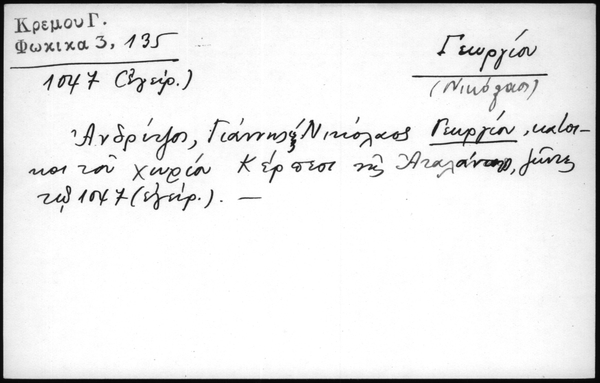 Κρεμου Γ.
Φωκικα 3, 135
1047 (ἐγείρ.)
Γεωργίου
(Νικόλαος)
Ἀνδρίτζος, Γιάννης & Νικόλαος Γεωργίου, κάτοι-
κοι τοῦ χωρίου Κέρπεσι τῆς Ἀταλάντης, ζῶντες
τῷ 1047 (ἐγείρ.). —